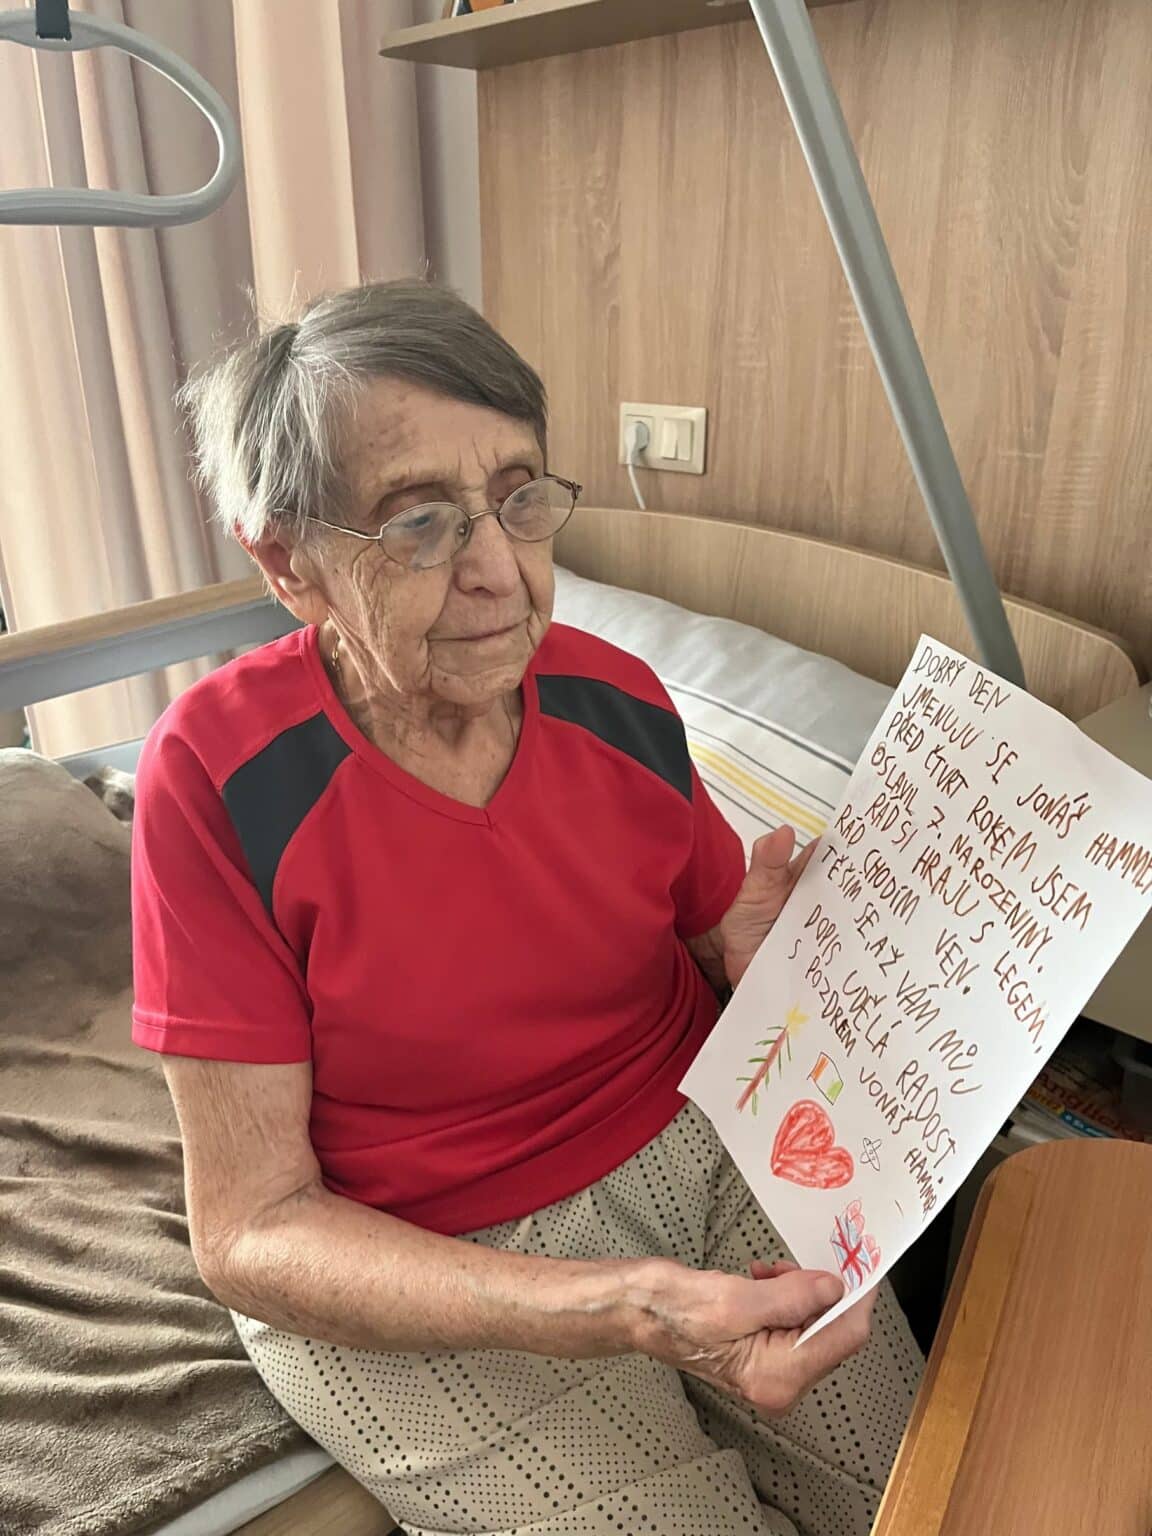 DOBRÝ DEN
JMENUJU SE JONÁŠ HAMMER
PŘED ČTVRT ROKEM JSEM
OSLAVIL 7. NAROZENINY.
RÁD SI HRAJU S LEGEM.
RÁD CHODÍM VEN.
TĚŠÍM SE, AŽ VÁM MŮJ
DOPIS UDĚLÁ RADOST.
S POZDREM JONÁŠ HAMMER